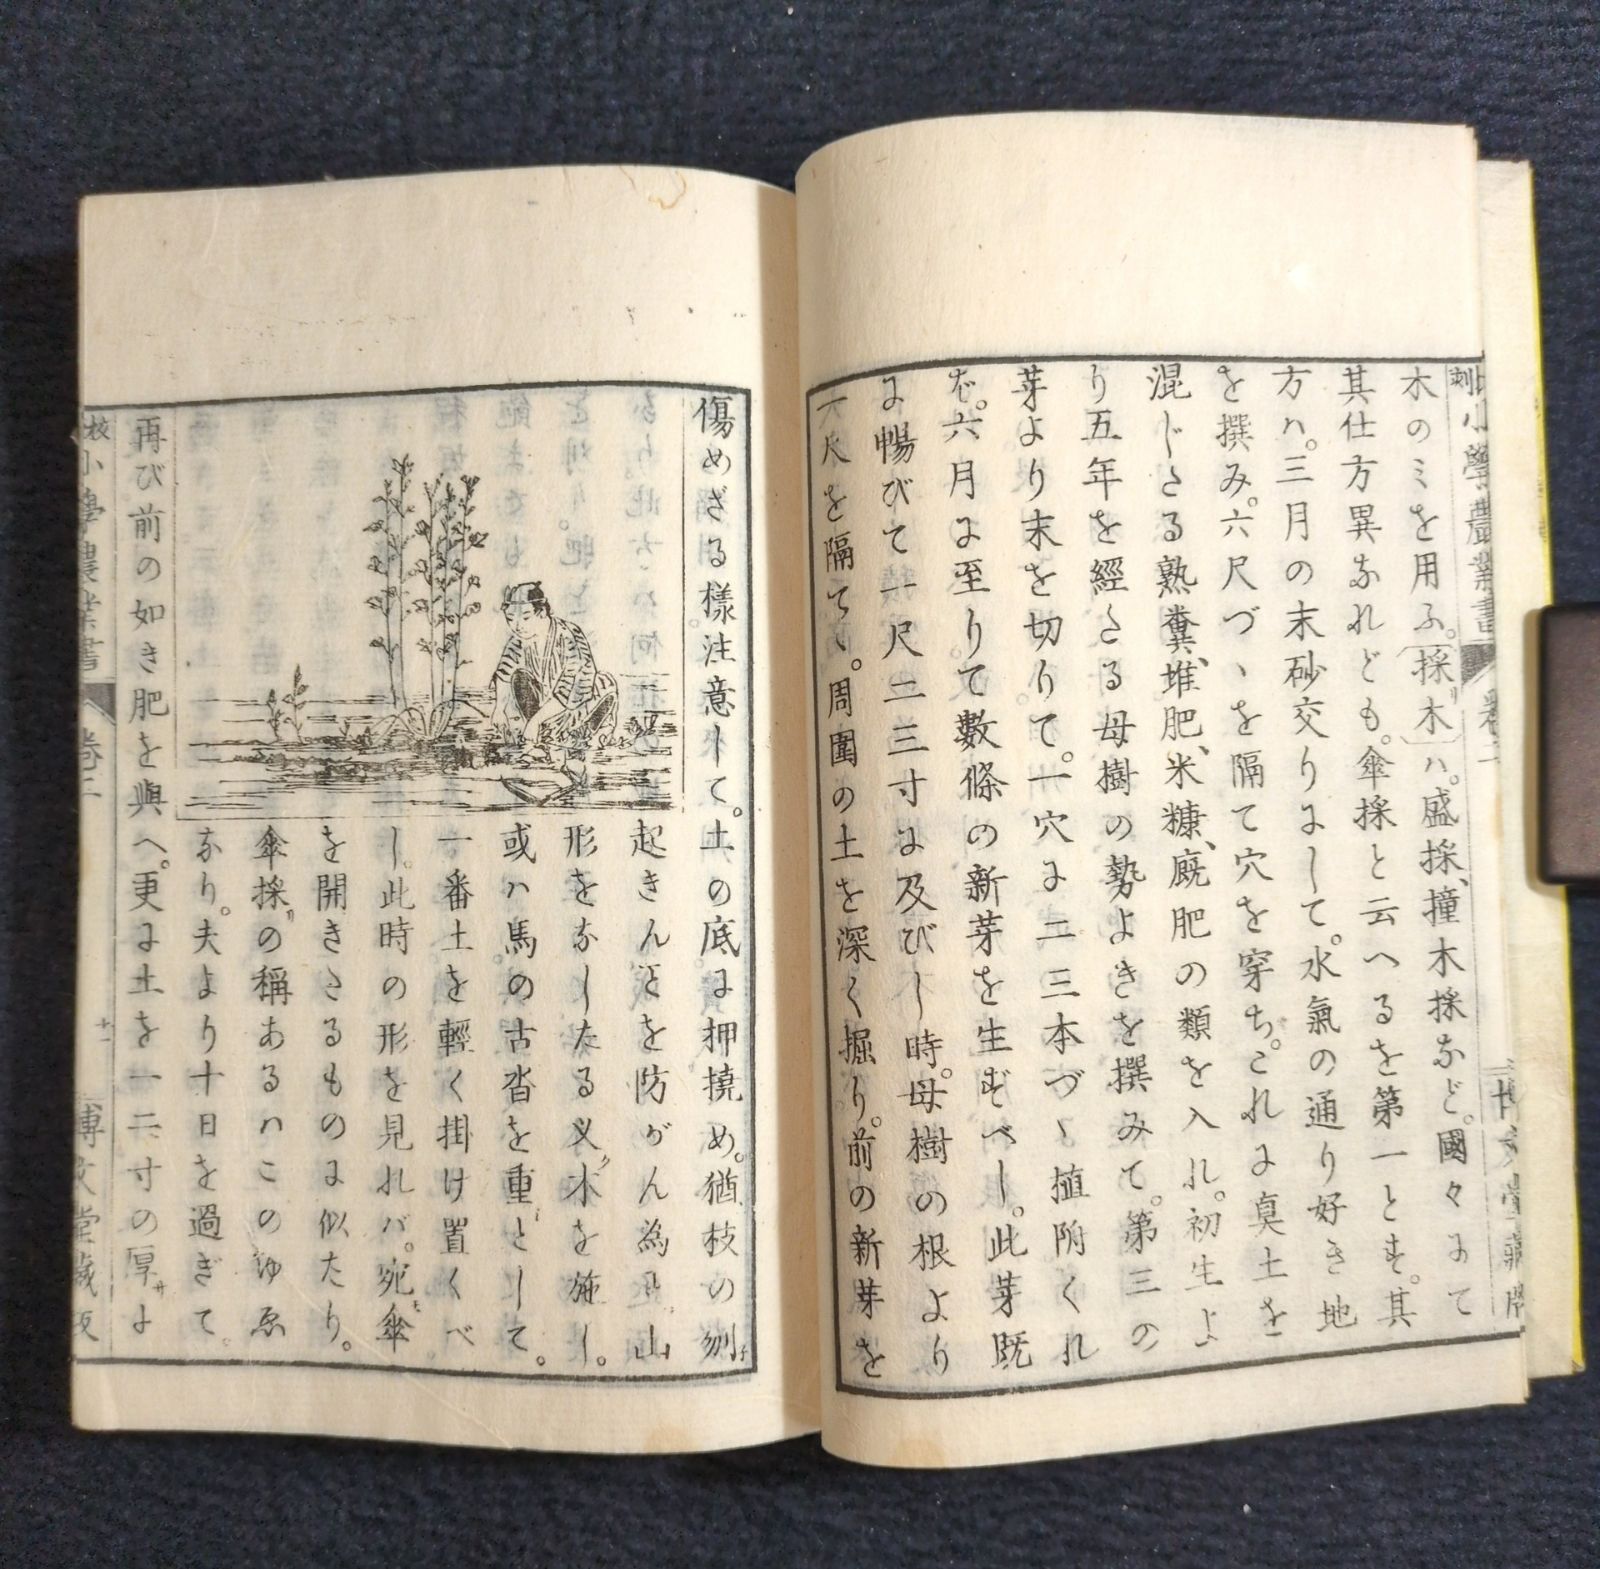 小學農業書 卷二 博文堂藏版
木のミを用ふ。〔採木〕ハ。盛採、撞木採など。國々にて
其仕方異なれども。傘採と云へるを第一とす。其
方ハ。三月の末砂交りにして。水氣の通り好き地
を撰み。六尺づゝを隔て穴を穿ち。これに真土を
混じたる熟糞、堆肥、米糠、厩肥の類を入れ。初生よ
り五年を經たる母樹の勢よきを撰みて。第三の
芽より末を切りて。一穴に二三本づゝ植附くれ
バ。六月に至りて數條の新芽を生ずべし。此芽既
に暢びて一尺二三寸に及びし時。母樹の根より
一尺を隔てゝ。周圍の土を深く掘り。前の新芽を
傷めざる樣注意して。土の底に押撓め。猶枝の刎
起きんとを防がん為に山
形をなしたる叉木を施し。
或ハ馬の古沓を重として。
一番土を輕く掛け置くべ
し。此時の形を見れバ。宛傘
を開きたるものに似たり。
傘採の稱あるハこのゆゑ
なり。夫より十日を過ぎて。
再び前の如き肥を與へ。更に土を一二寸の厚さよ
校小學農業書 卷二 十一 博文堂藏版